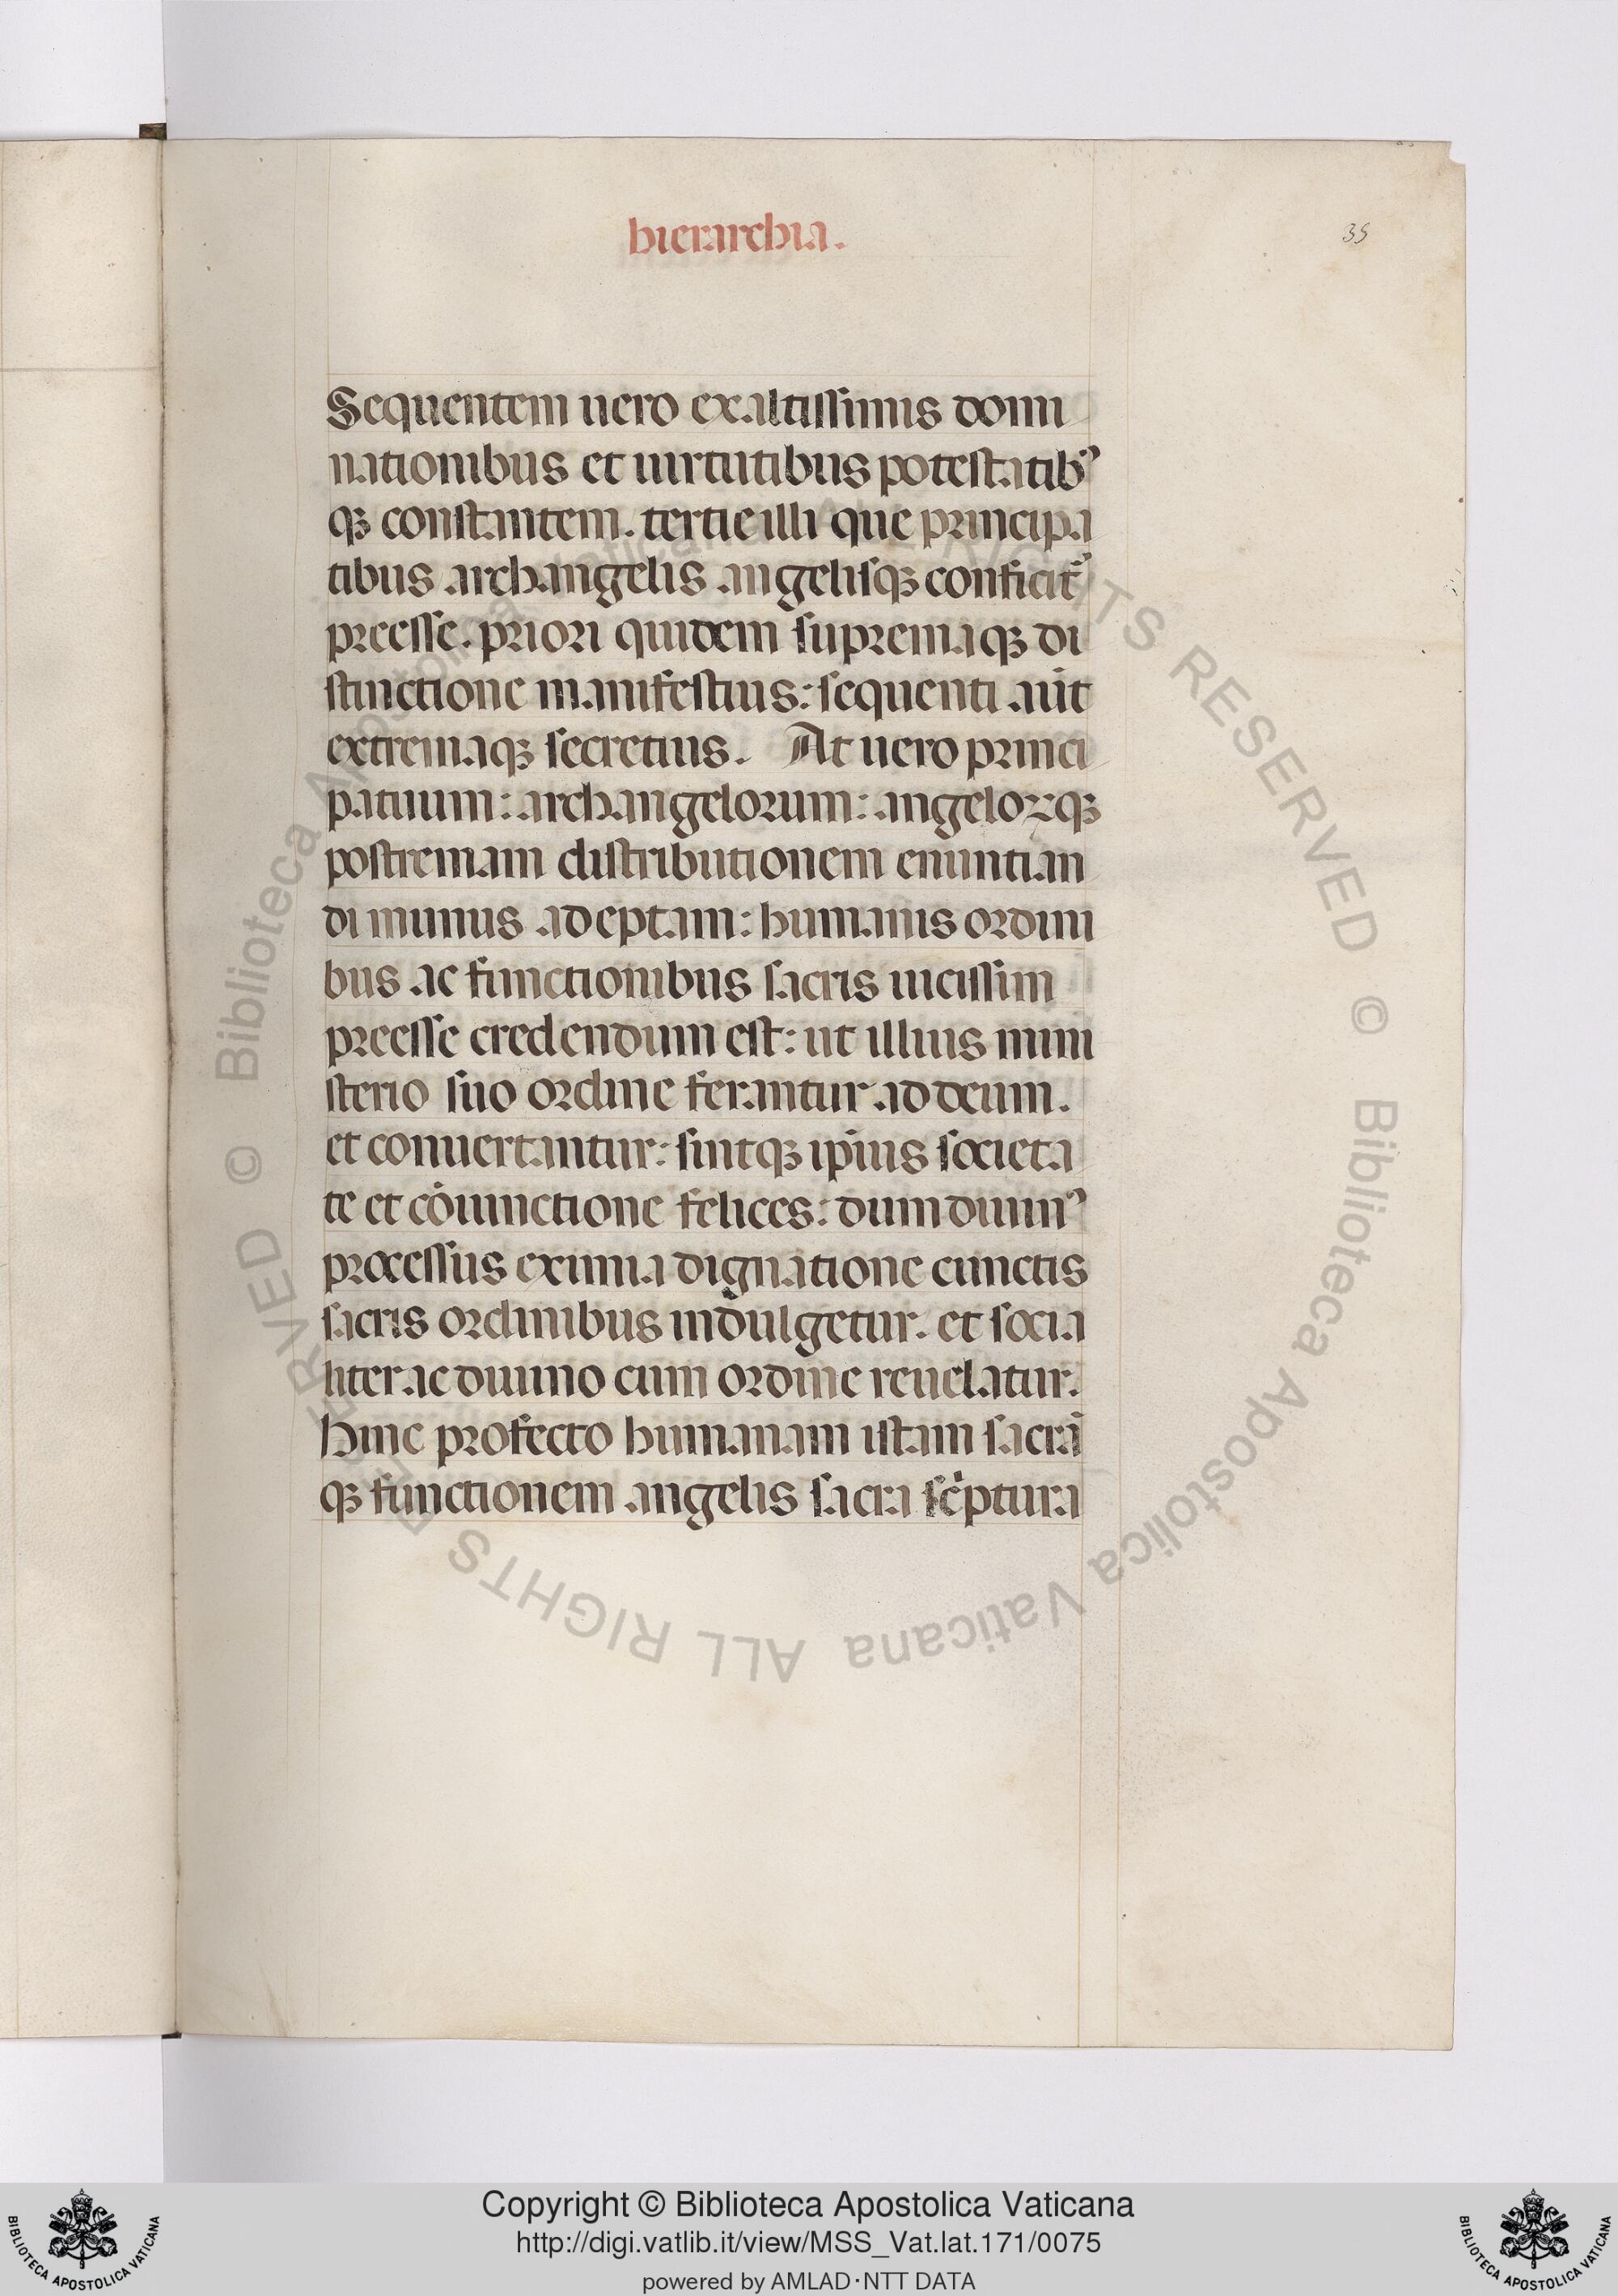 hierarchia.
35
Sequentem uero exaltissimis domi
nationibus et uirtutibus potestatibꝰ
qꝫ constantem. tertie illi que principa
tibus archangelis angelisqꝫ conficitᷣ
preesse. priori quidem supremaqꝫ di
stinctione manifestius: sequenti aūt
extremaqꝫ secretius. At uero princi
patuum: archangelorum: angeloꝝqꝫ
postremam distributionem enuntian
di munus adeptam: humanis ordini
bus ac functionibus sacris uicissim
preesse credendum est: ut illius mini
sterio suo ordine ferantur ad deum.
et conuertantur: sintqꝫ ip̄ius societa
te et cōiunctione felices: dum diuinꝰ
processus eximia dignatione cunctis
sacris ordinibus indulgetur. et socia
liter ac diuino cum ordine reuelatur.
Hinc profecto humanam istam sacrā
qꝫ functionem angelis sacra sc̄ptura
© Biblioteca Apostolica Vaticana ALL RIGHTS RESERVED © Biblioteca Apostolica Vaticana ALL RIGHTS RESERVED
Copyright © Biblioteca Apostolica Vaticana
http://digi.vatlib.it/view/MSS_Vat.lat.171/0075
powered by AMLAD·NTT DATA
BIBLIOTECA APOSTOLICA VATICANA
BIBLIOTECA APOSTOLICA VATICANA